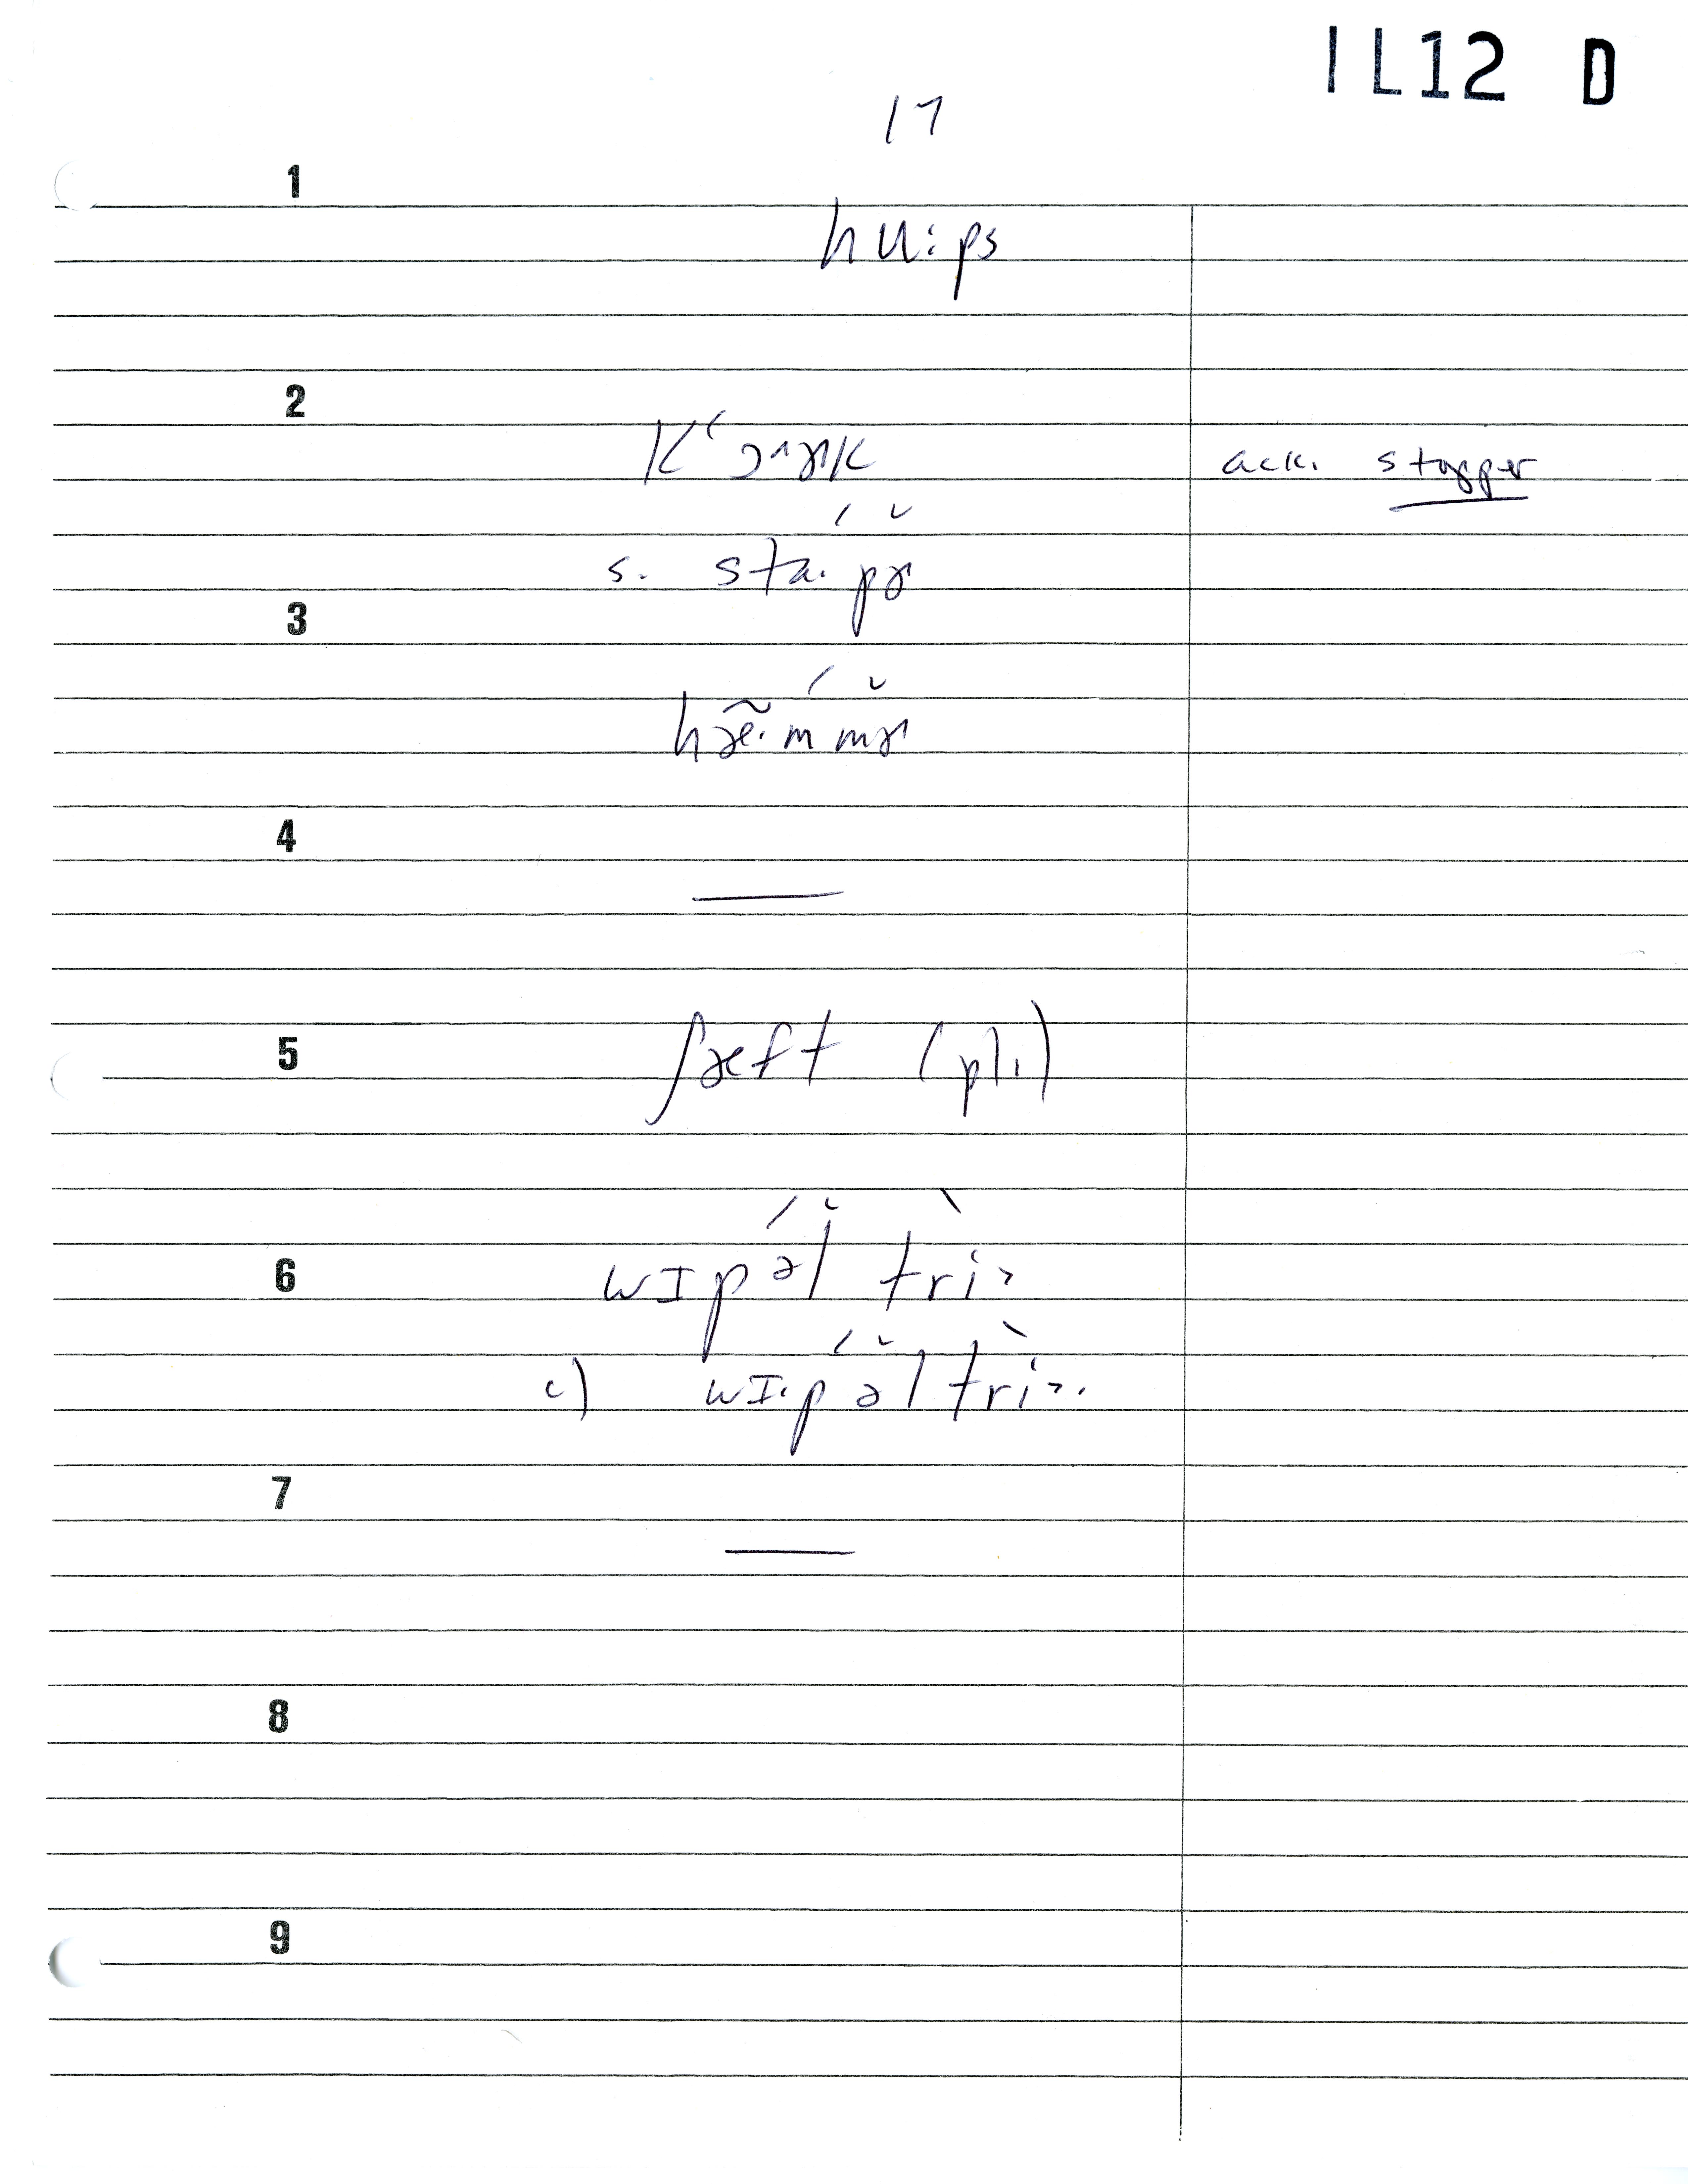 IL12 D
17
1
hu:ps
2
ack. stopper
s. sta.pɚ
3
hæ̃.mmɚ
4
5
ʃæft (pl.)
6
wɪpəl tri>
c) wɪ.pəl tri>.
7
8
9